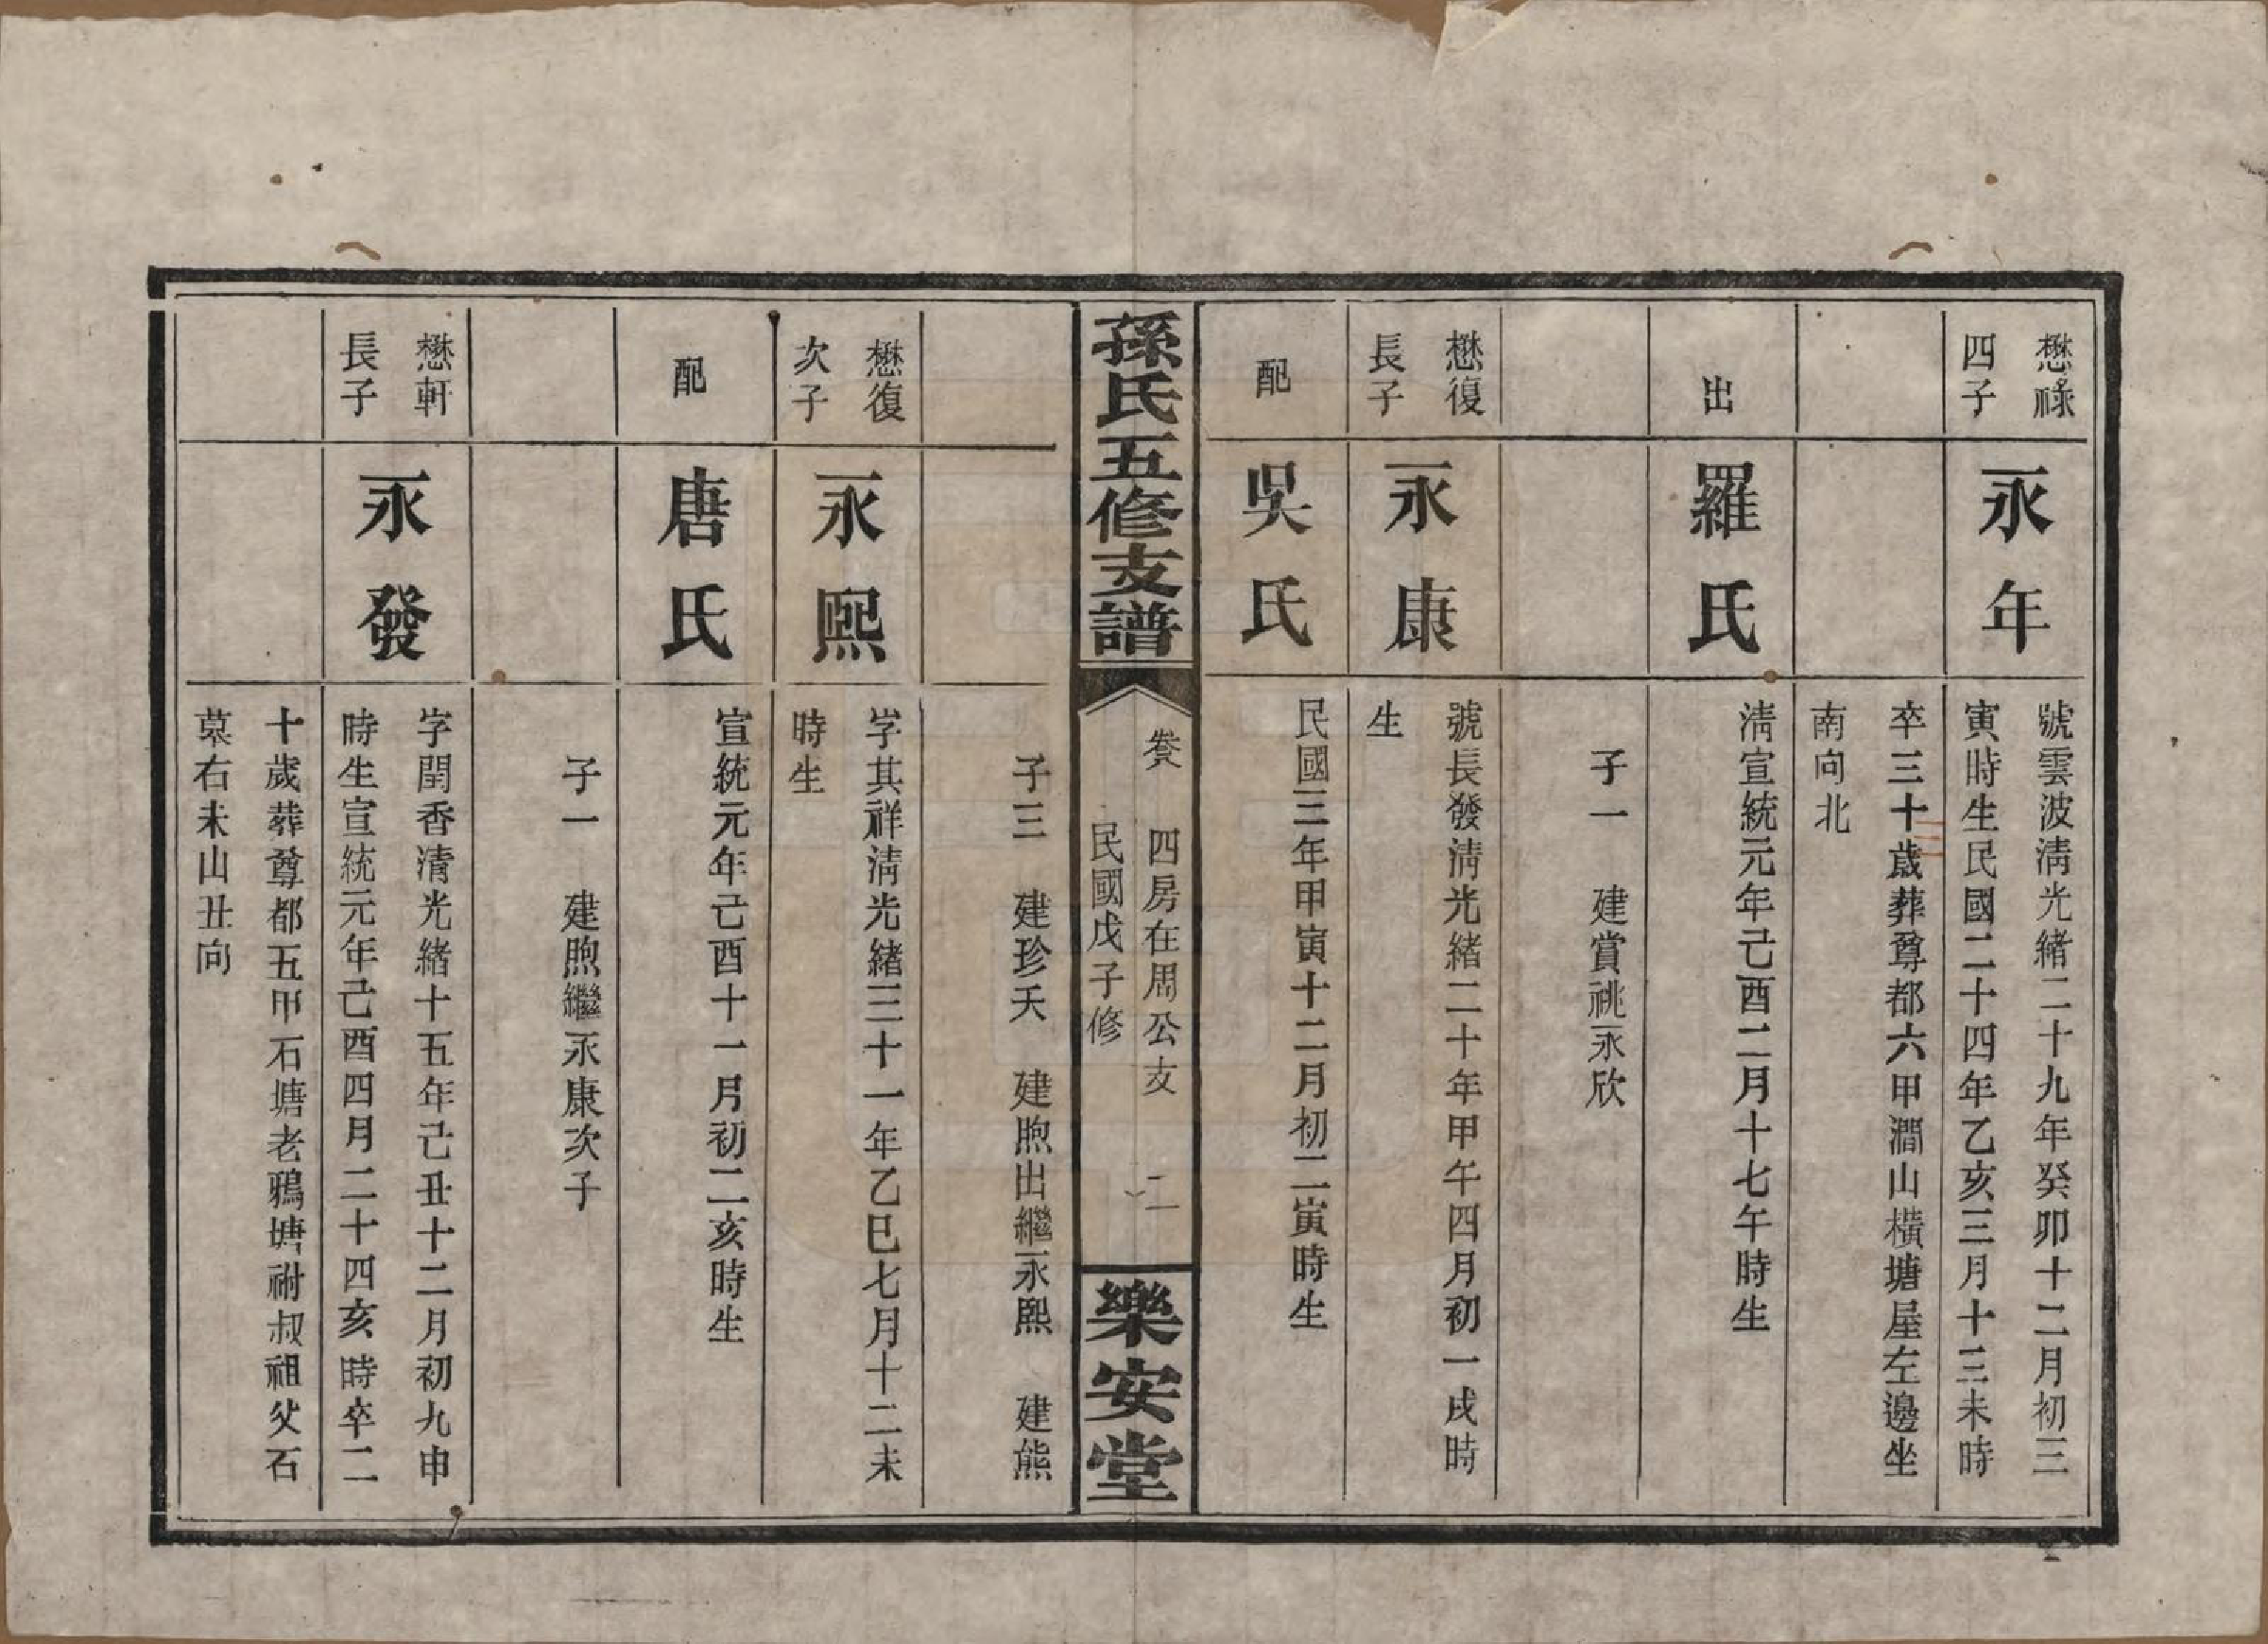 懋祿
四子
永年
號雲波淸光緒二十九年癸卯十二月初三
寅時生民國二十四年乙亥三月十三未時
卒三十歲葬尊都六甲澗山橫塘屋左邊坐
南向北
出
羅氏
淸宣統元年己酉二月十七午時生
子一　建賞祧永欣
懋復
長子
永康
號長發淸光緒二十年甲午四月初一戌時
生
配
吳氏
民國三年甲寅十二月初二寅時生
孫氏五修支譜
卷　四房在周公支　二
民國戊子修
樂安堂
子三　建珍夭　建煦出繼永熙　建熊
懋復
次子
永熙
字其祥淸光緒三十一年乙巳七月十二未
時生
配
唐氏
宣統元年己酉十一月初二亥時生
子一　建煦繼永康次子
懋軒
長子
永發
字閏香淸光緒十五年己丑十二月初九申
時生宣統元年己酉四月二十四亥時卒二
十歲葬尊都五甲石塘老鴉塘祔叔祖父石
墓右未山丑向